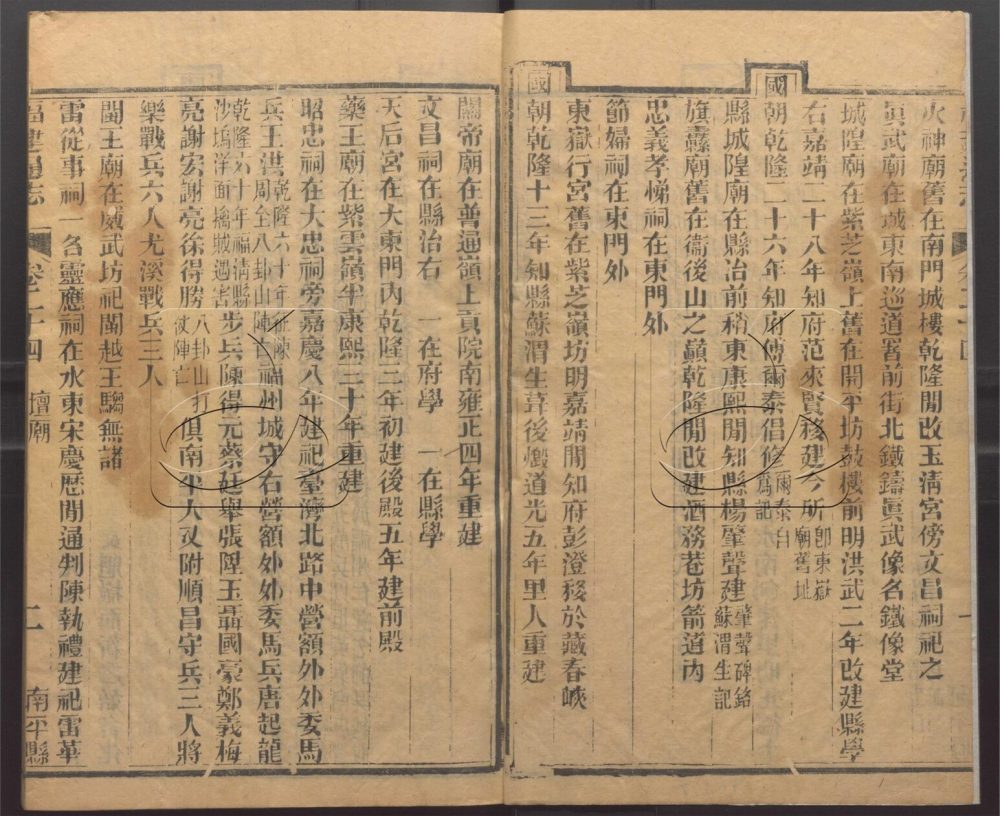 火神廟舊在南門城樓乾隆閒改玉清宮傍文昌祠祀之
眞武廟在城東南巡道署前街北鐵鑄眞武像名鐵像堂
城隍廟在紫芝嶺上舊在開平坊鼓樓前明洪武二年改建縣學
右嘉靖二十八年知府范來賢移建今所卽東嶽廟舊址
國朝乾隆二十六年知府傅爾泰倡修爾泰自爲記
縣城隍廟在縣治前稍東康熙閒知縣楊肇聲建肇聲碑銘蘇渭生記
旗纛廟舊在衞後山之巔乾隆閒改建酒務巷坊箭道內
忠義孝悌祠在東門外
節婦祠在東門外
東嶽行宮舊在紫芝嶺坊明嘉靖閒知府彭澄移於藏春峽
國朝乾隆十三年知縣蘇渭生葺後燬道光五年里人重建
關帝廟在普通嶺上貢院南雍正四年重建
文昌祠在縣治右 一在府學 一在縣學
天后宮在大東門內乾隆二年初建後殿五年建前殿
藥王廟在紫雲嶺半康熙二十年重建
昭忠祠在大忠祠旁嘉慶八年建祀臺灣北路中營額外外委馬
兵王洪周全八卦山陣亡福州城守右營額外外委馬兵唐起龍
乾隆六十年福清縣沙塢洋面擒賊遇害步兵陳得元蔡廷舉張陞玉聶國豪鄭義梅
亮謝宏謝亮徐得勝八卦山打仗陣亡俱南平人又附順昌守兵三人將
樂戰兵六人尤溪戰兵三人
閩王廟在威武坊祀閩越王騶無諸
雷從事祠一名靈應祠在水東宋慶歷閒通判陳執禮建祀雷華
福建通志 卷二十四 壇廟 二 南平縣